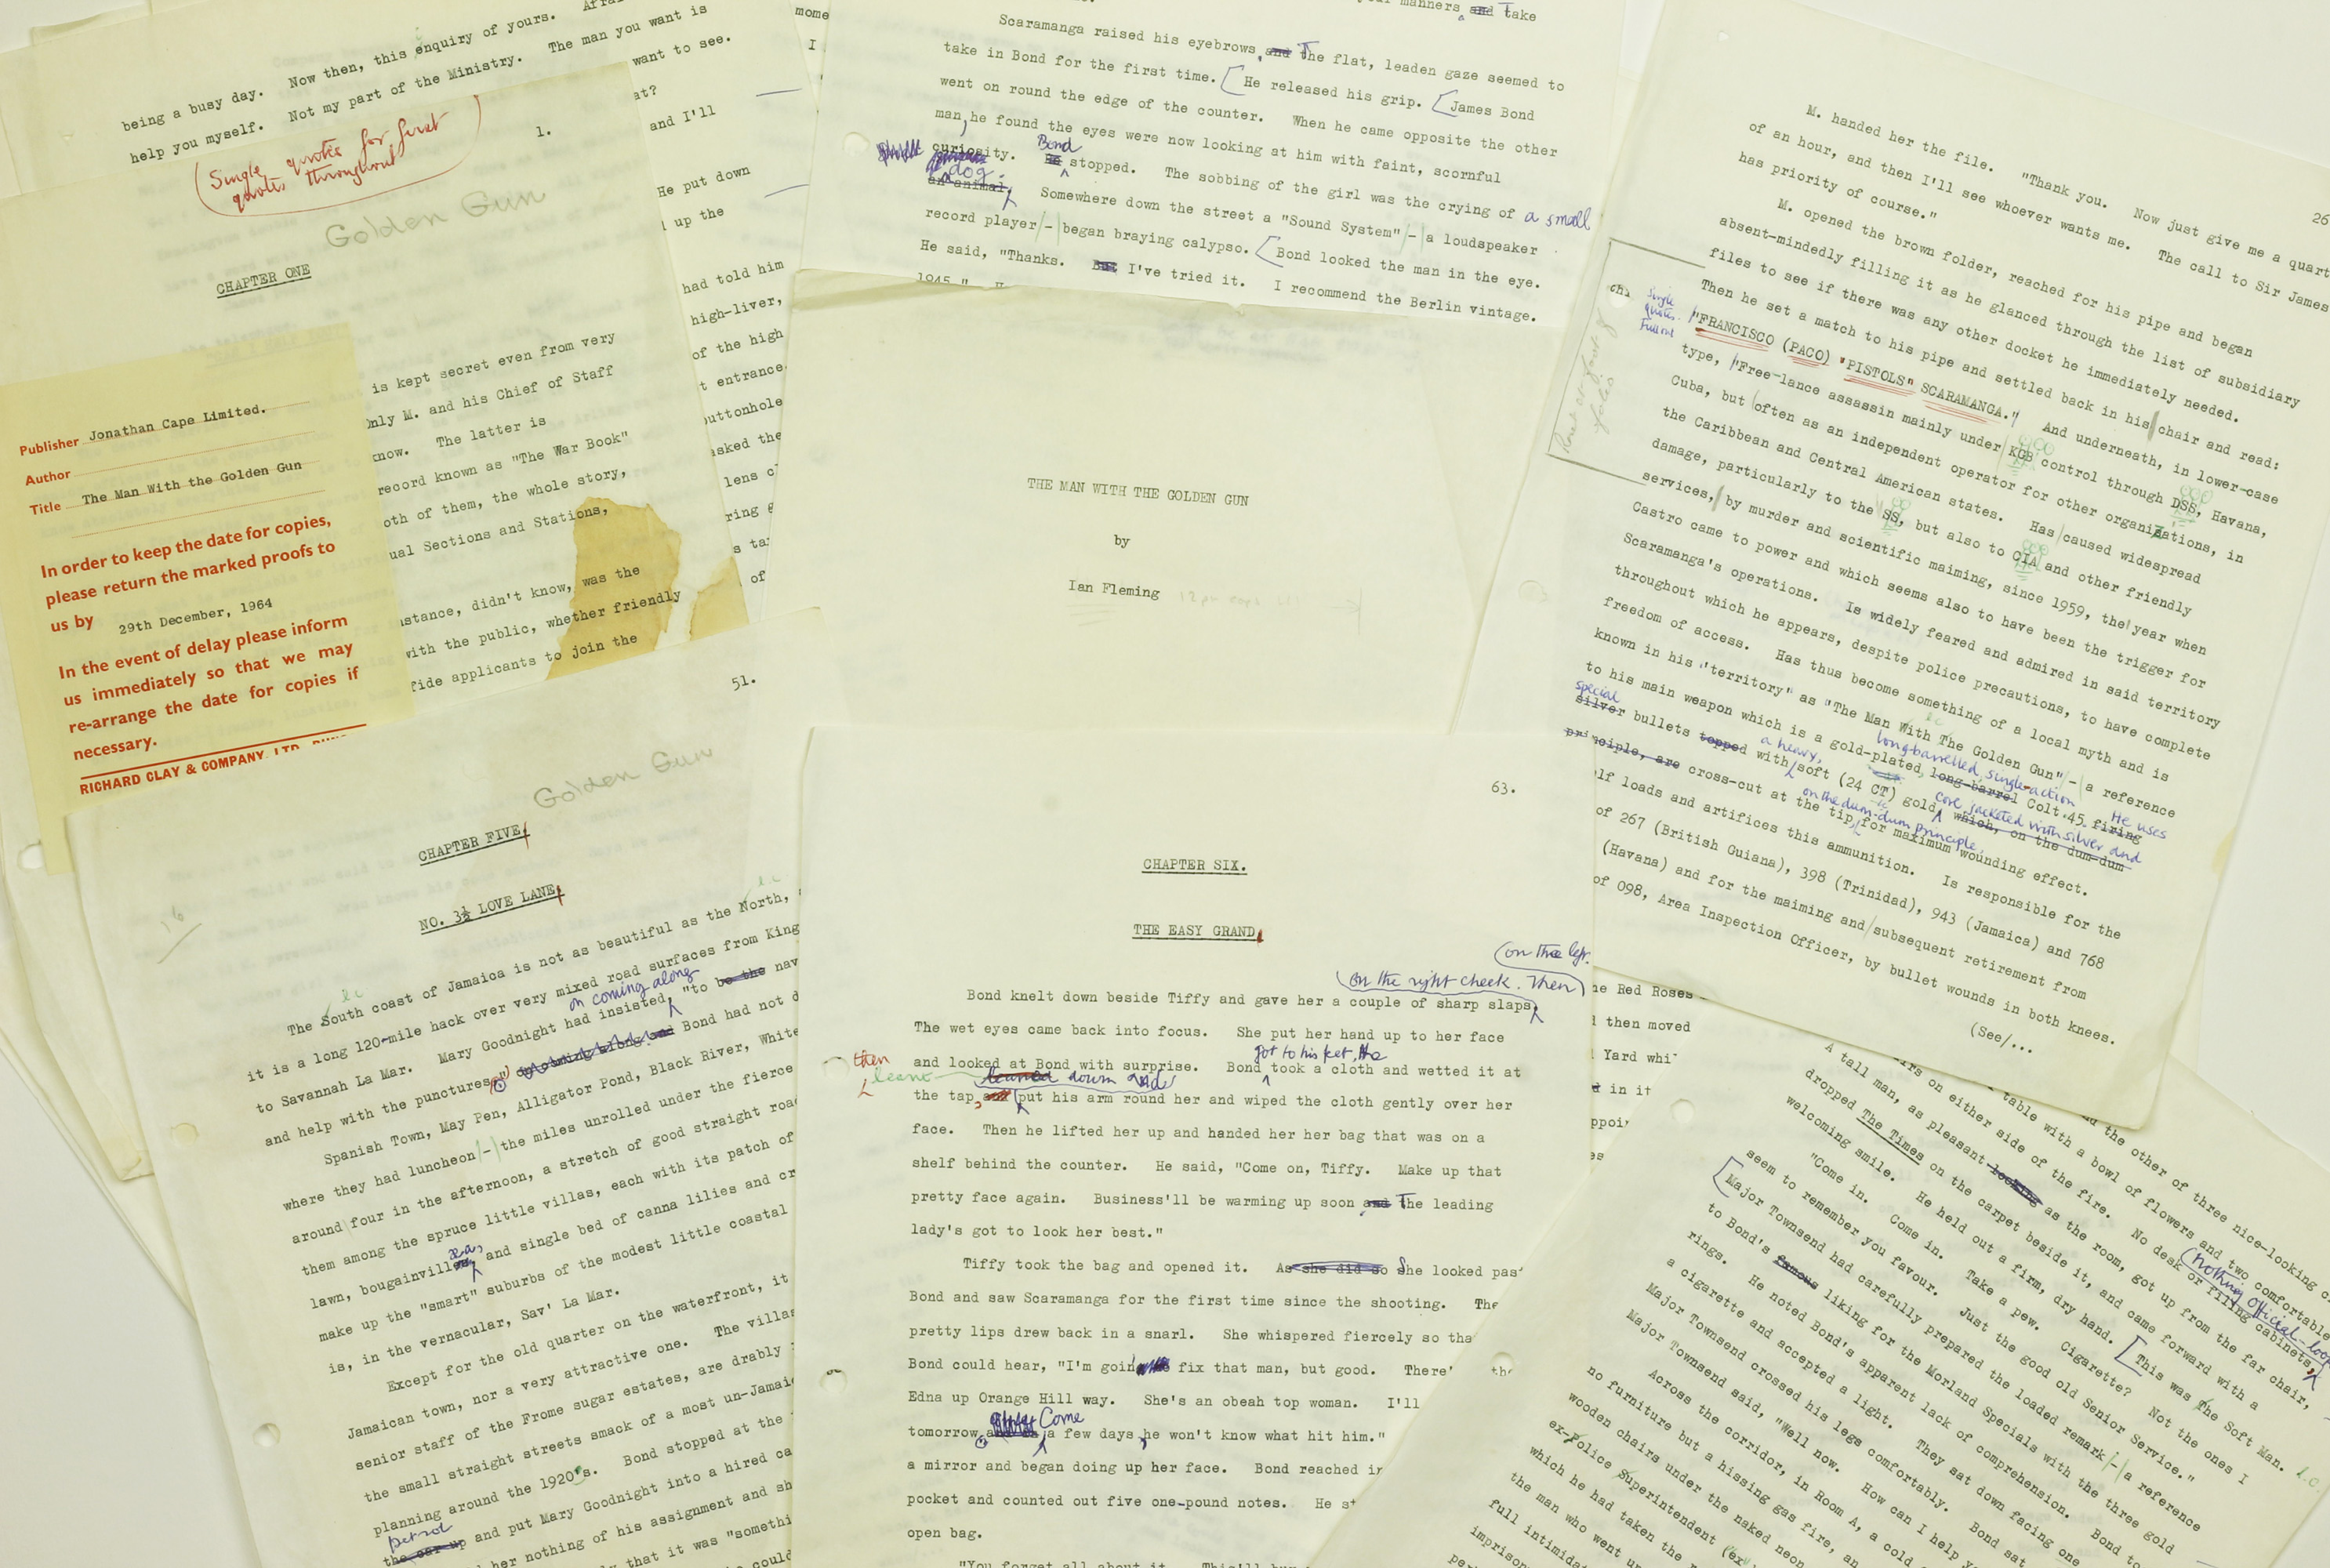 being a busy day. Now then, this enquiry of yours.
help you myself. Not my part of the Ministry. The man you want is
want to see.
at?
and I'll
He put down
up the
had told him
high-liver,
of the high
t entrance
buttonhole
asked the
Single quotes for first
quotes throughout
1.
Golden Gun
CHAPTER ONE
is kept secret even from very
Only M. and his Chief of Staff
know. The latter is
record known as "The War Book"
oth of them, the whole story,
ual Sections and Stations,
stance, didn't know, was the
with the public, whether friendly
fide applicants to join the
Publisher Jonathan Cape Limited.
Author
Title The Man With the Golden Gun
In order to keep the date for copies,
please return the marked proofs to
us by 29th December, 1964
In the event of delay please inform
us immediately so that we may
re-arrange the date for copies if
necessary.
RICHARD CLAY & COMPANY, LTD.
manners and Take
Scaramanga raised his eyebrows, and The flat, leaden gaze seemed to
take in Bond for the first time. [He released his grip. [James Bond
went on round the edge of the counter. When he came opposite the other
man, he found the eyes were now looking at him with faint, scornful
curiosity. He Bond stopped. The sobbing of the girl was the crying of a small
an animal dog. Somewhere down the street a "Sound System" - a loudspeaker
record player - began braying calypso. [Bond looked the man in the eye.
He said, "Thanks. But I've tried it. I recommend the Berlin vintage.
1945."
THE MAN WITH THE GOLDEN GUN
by
Ian Fleming
26
M. handed her the file. "Thank you. Now just give me a quart
of an hour, and then I'll see whoever wants me. The call to Sir James
has priority of course."
M. opened the brown folder, reached for his pipe and began
absent-mindedly filling it as he glanced through the list of subsidiary
files to see if there was any other docket he immediately needed.
Then he set a match to his pipe and settled back in his chair and read:
Single
quotes.
Full out
"FRANCISCO (PACO) "PISTOLS" SCARAMANGA." And underneath, in lower-case
type, "Free-lance assassin mainly under KGB control through DSS, Havana,
Cuba, but often as an independent operator for other organizations, in
the Caribbean and Central American states. Has caused widespread
damage, particularly to the SS, but also to CIA and other friendly
services, by murder and scientific maiming, since 1959, the year when
Castro came to power and which seems also to have been the trigger for
Scaramanga's operations. Is widely feared and admired in said territory
throughout which he appears, despite police precautions, to have complete
freedom of access. Has thus become something of a local myth and is
known in his "territory" as "The Man With The Golden Gun" - a reference
to his main weapon which is a gold-plated, long-barrel long-barrelled, single-action Colt .45. firing He uses
silver special bullets topped with a heavy, soft (24 CT) gold core jacketed with silver and which, on the dum-dum
principle, are cross-cut at the tip, on the dum-dum principle, for maximum wounding effect.
lf loads and artifices this ammunition. Is responsible for the
of 267 (British Guiana), 398 (Trinidad), 943 (Jamaica) and 768
(Havana) and for the maiming and subsequent retirement from
of 098, Area Inspection Officer, by bullet wounds in both knees.
(See/...
51.
Golden Gun
CHAPTER FIVE
NO. 3½ LOVE LANE
The South coast of Jamaica is not as beautiful as the North,
it is a long 120-mile hack over very mixed road surfaces from King
to Savannah La Mar. Mary Goodnight had insisted, on coming along "to be the nav
and help with the punctures". Bond had not d
Spanish Town, May Pen, Alligator Pond, Black River, White
where they had luncheon - the miles unrolled under the fierce
around four in the afternoon, a stretch of good straight road
them among the spruce little villas, each with its patch of
lawn, bougainvillæa, and single bed of canna lilies and cr
make up the "smart" suburbs of the modest little coastal
is, in the vernacular, Sav' La Mar.
Except for the old quarter on the waterfront, it
Jamaican town, nor a very attractive one. The villas
senior staff of the Frome sugar estates, are drably
the small straight streets smack of a most un-Jamaic
planning around the 1920's. Bond stopped at the
the car up petrol and put Mary Goodnight into a hired ca
her nothing of his assignment and sh
that it was "somethi
could
63.
CHAPTER SIX.
THE EASY GRAND
Bond knelt down beside Tiffy and gave her a couple of sharp slaps on the right cheek. Then on the left.
The wet eyes came back into focus. She put her hand up to her face
and looked at Bond with surprise. Bond got to his feet. He took a cloth and wetted it at
the tap, and then leant leaned down and put his arm round her and wiped the cloth gently over her
face. Then he lifted her up and handed her her bag that was on a
shelf behind the counter. He said, "Come on, Tiffy. Make up that
pretty face again. Business'll be warming up soon and The leading
lady's got to look her best."
Tiffy took the bag and opened it. As she did so She looked pas
Bond and saw Scaramanga for the first time since the shooting. The
pretty lips drew back in a snarl. She whispered fiercely so tha
Bond could hear, "I'm goin' fix that man, but good. There'
Edna up Orange Hill way. She's an obeah top woman. I'll
tomorrow. Come a few days, he won't know what hit him."
a mirror and began doing up her face. Bond reached in
pocket and counted out five one-pound notes. He st
open bag.
"You forget all about it. This'll buy
he Red Roses
then moved
Yard whi
in it
the other of three nice-looking c
on either side of the fire. table with a bowl of flowers and two comfortable
A tall man, as pleasant looking as the room, got up from the far chair,
No desk or filing cabinets. Nothing official-loo
dropped The Times on the carpet beside it, and came forward with a
welcoming smile. He held out a firm, dry hand. [This was The Soft Man.
"Come in. Come in. Take a pew. Cigarette? Not the ones I
seem to remember you favour. Just the good old Senior Service."
[Major Townsend had carefully prepared the loaded remark - a reference
to Bond's famous liking for the Morland Specials with the three gold
rings. He noted Bond's apparent lack of comprehension. Bond to
a cigarette and accepted a light. They sat down facing one
Major Townsend crossed his legs comfortably. Bond sat
Major Townsend said, "Well now. How can I help yo
Across the corridor, in Room A, a cold
no furniture but a hissing gas fire, an
wooden chairs under the naked neon
ex-Police Superintendent
which he had taken the
the man who went
full intimida
imprison